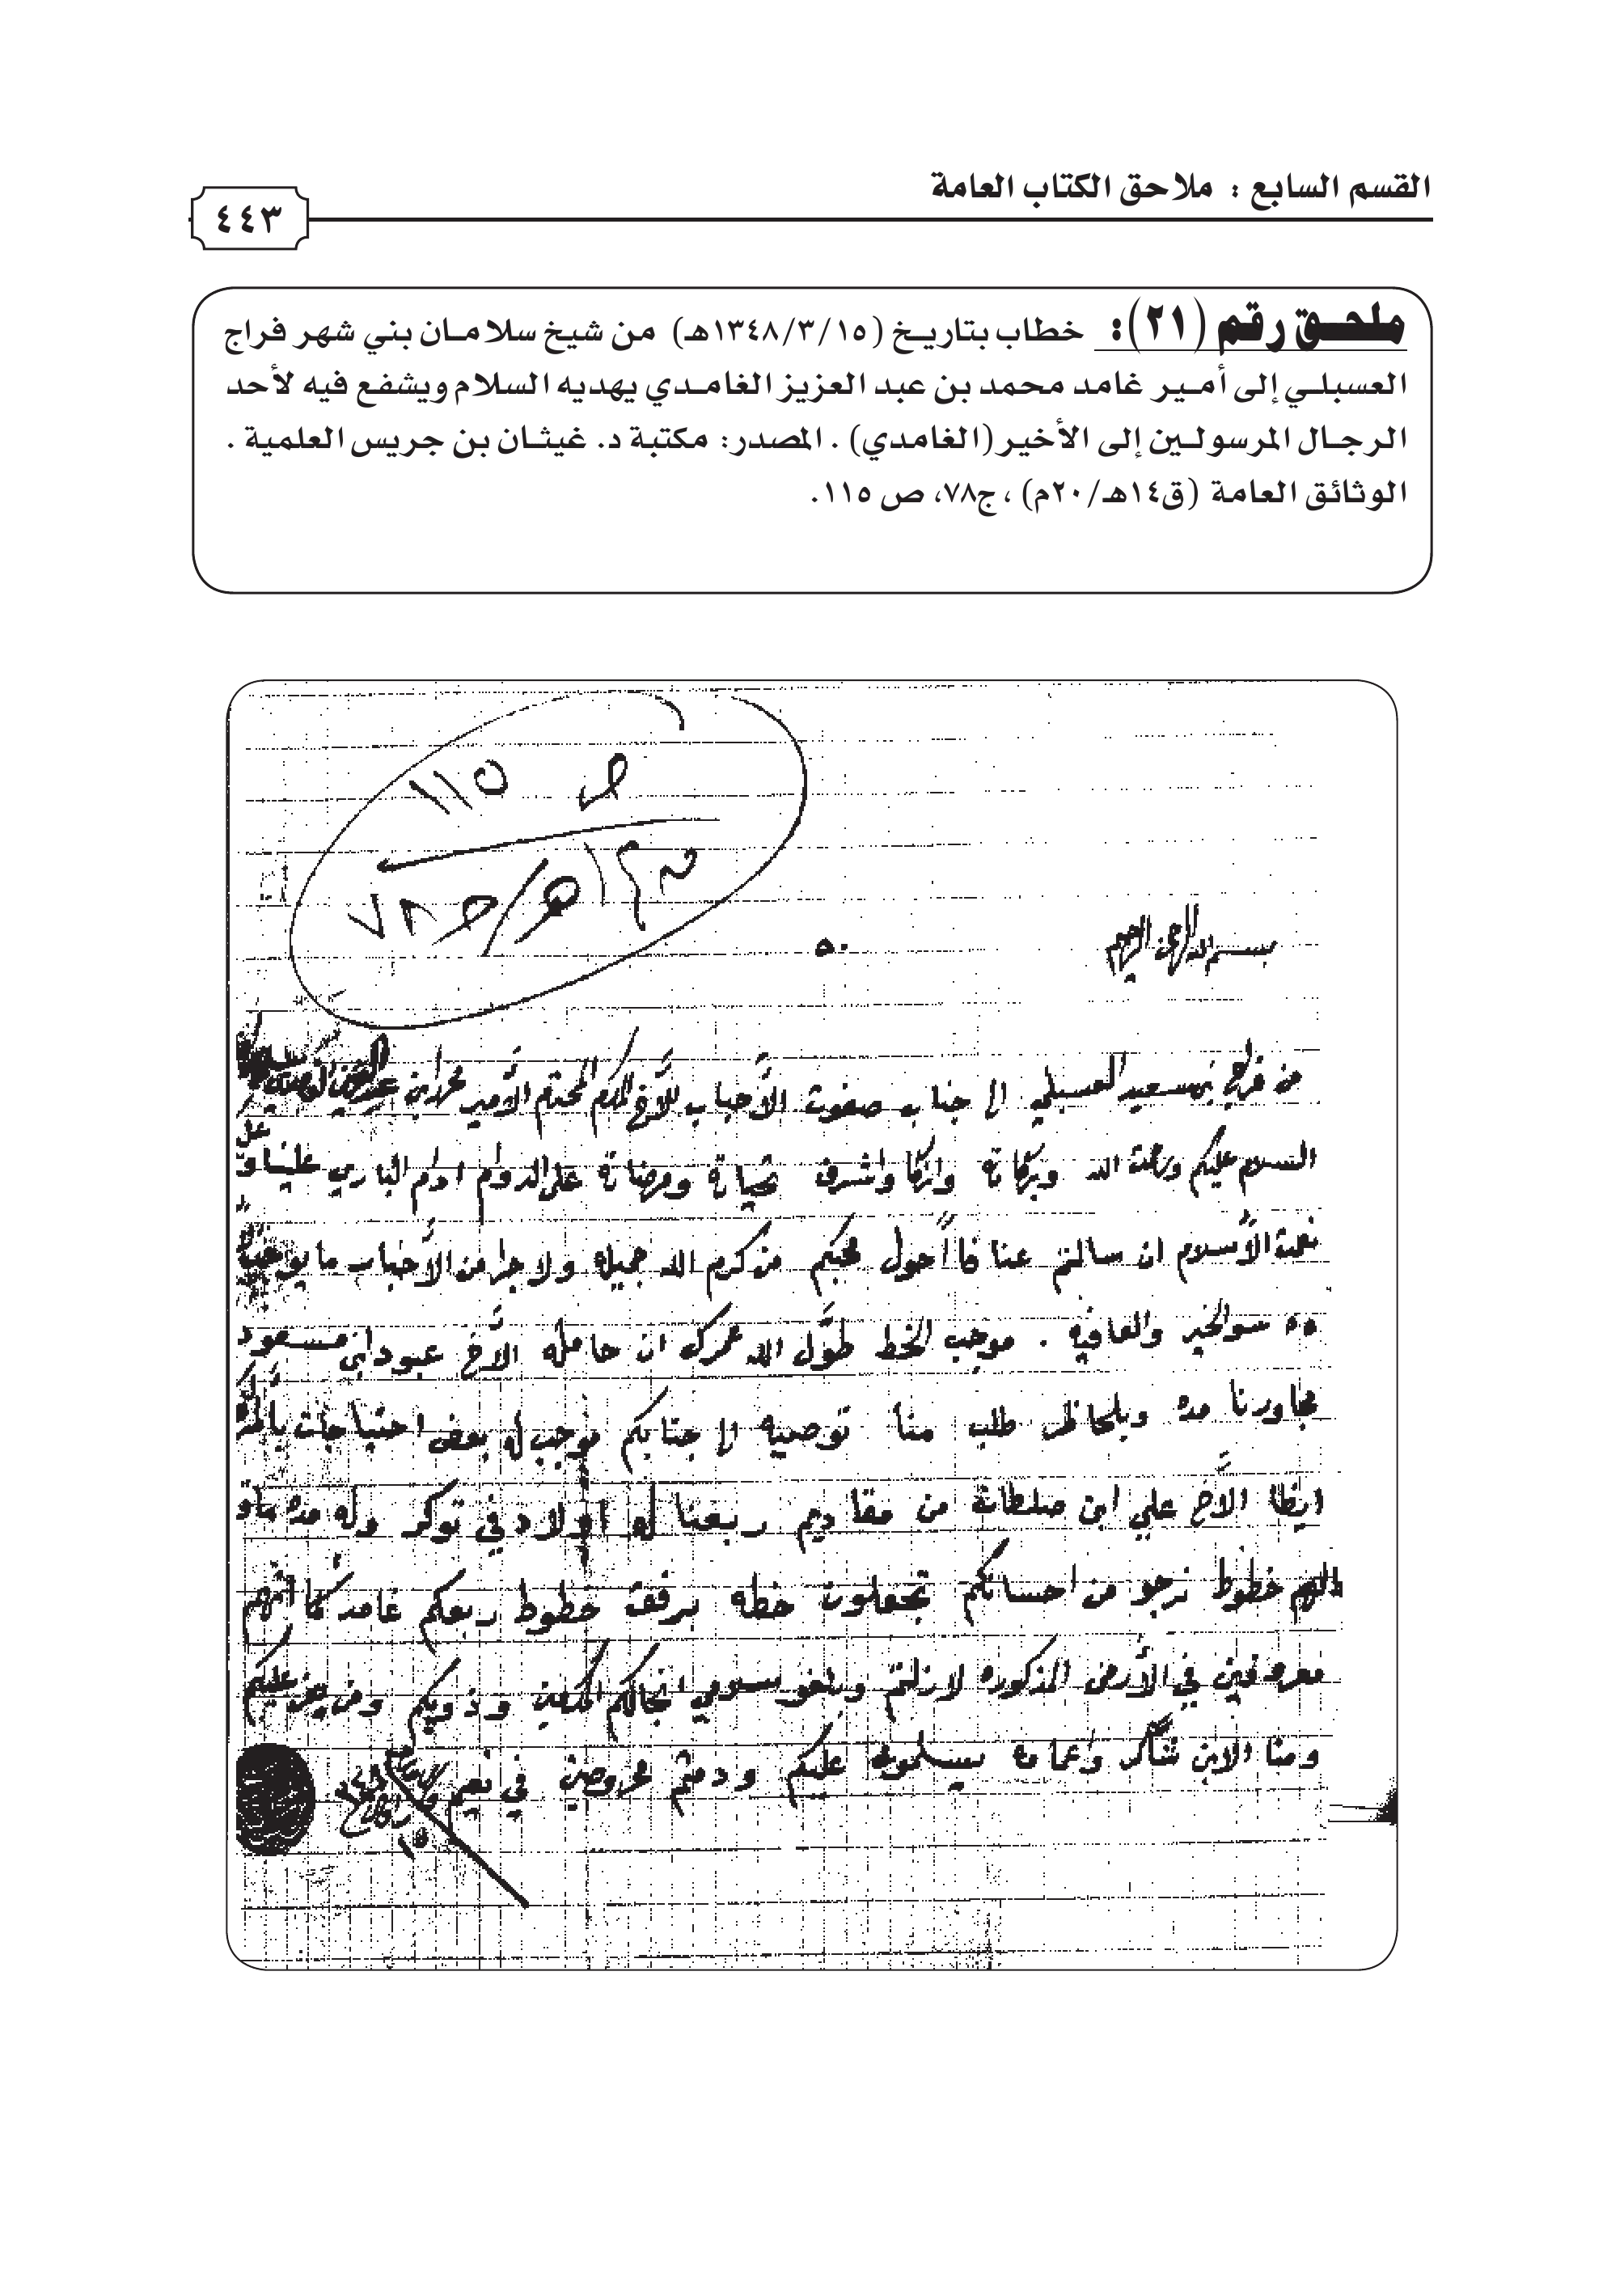 القسم السابع : ملاحق الكتاب العامة
٤٤٣
ملحق رقم (٢١): خطاب بتاريخ (١٣٤٨/٣/١٥هـ) من شيخ سلامان بني شهر فراج
العسبلي إلى أمير غامد محمد بن عبد العزيز الغامدي يهديه السلام ويشفع فيه لأحد
الرجال المرسولين إلى الأخير (الغامدي) . المصدر: مكتبة د. غيثان بن جريس العلمية .
الوثائق العامة (ق١٤هـ/٢٠م) ، ج٧٨، ص ١١٥.
ص ١١٥
ج٧٨
بسم الله الرحمن الرحيم
من فراج بن سعيد العسبلي الى جناب صفوت الأحباب للأخ المكرم المحترم الأمير محمد ابن
السلام عليكم ورحمت الله وبركاته وازكا واشرف تحياته ومرضاته على الدوام ادام الباري علينا و
نعمت الأسلام ان سالتم عنا فاأحول محبكم من كرم الله جميله ولا جرا من الأحباب ما يوجب
سوالخير والعافيه . موجب الخط طوّل الله عمرك ان حامله الأخ عبود ابن مسعود
مجاورنا مده وبلحاظر طلب منا توصيه الى جنابكم موجب له بعض احتياجات
ايظا الأخ علي ابن صلطانة من مقاديم ربعنا له اولاد في توكر وله مده
خطوط نرجو من احسانكم تجعلون خطه برفقت خطوط ربعكم غامد
معروفين في الأرض المذكوره لازلتم وبلغو سلامي انجالكم المكرمين وذويكم ومن يعز عليكم
ومنا الابن وعمامه يسلمون عليكم ودمتم محروصين في نعيم